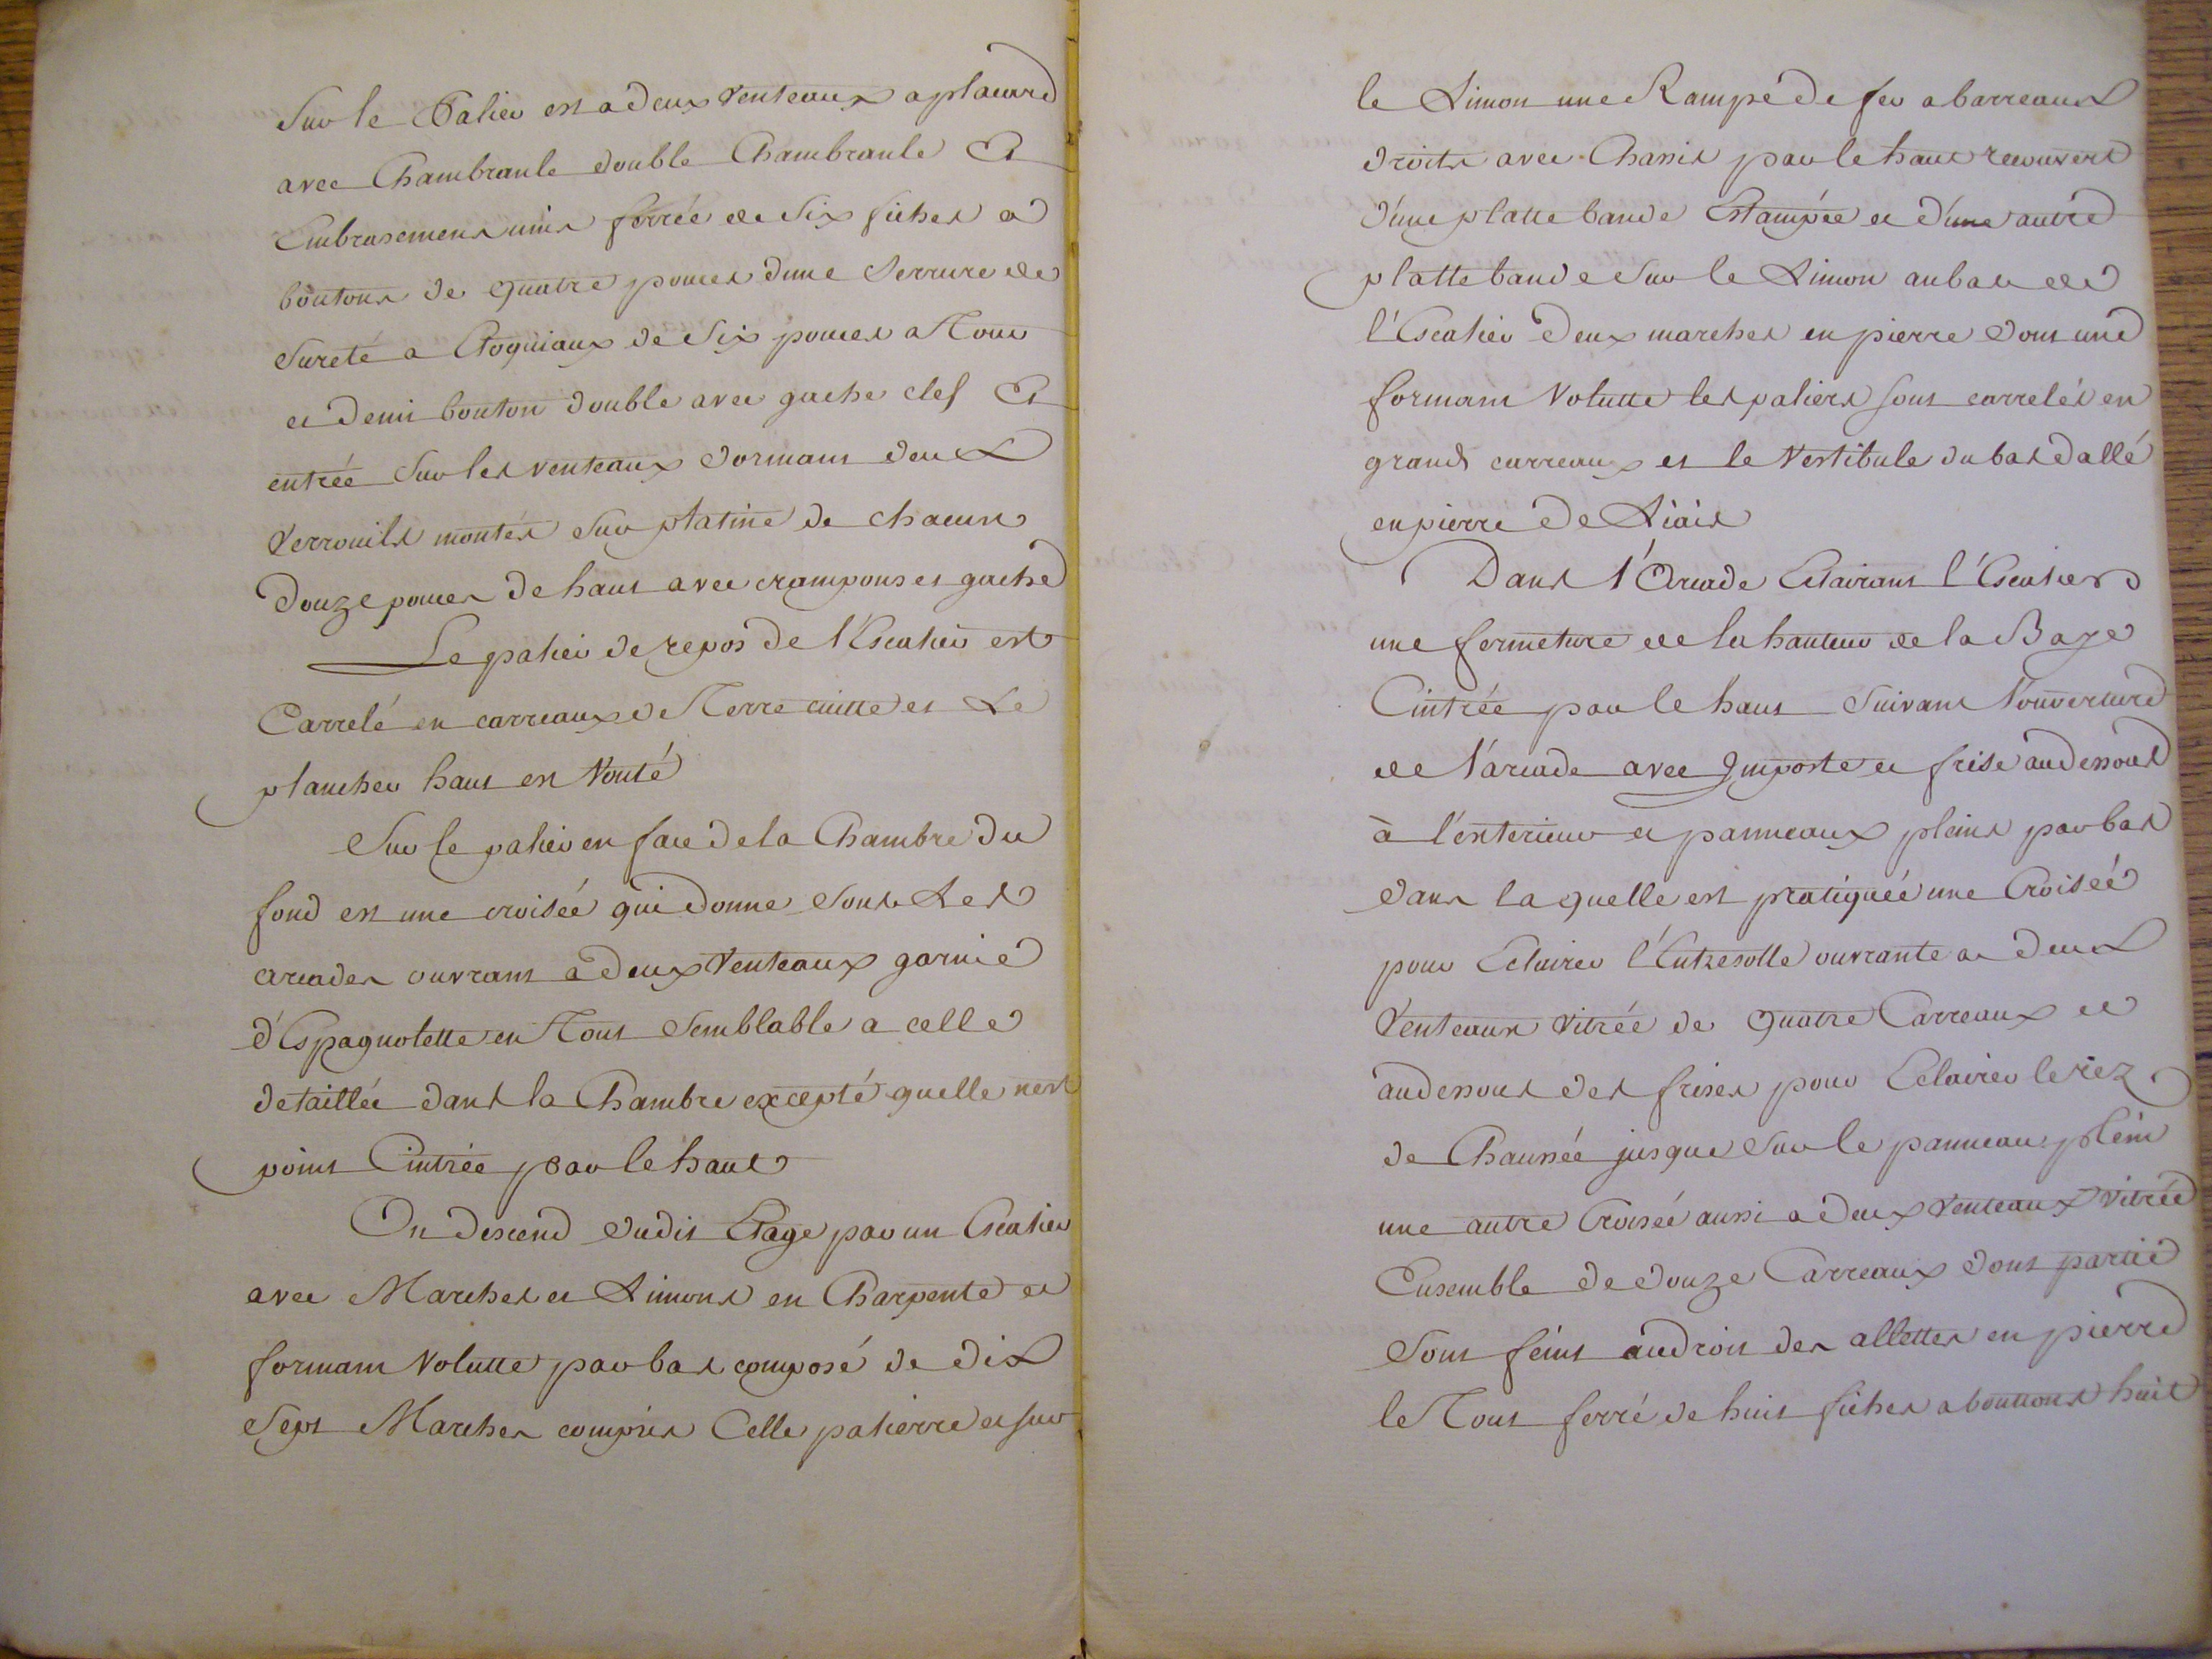 Sur le Palier est a deux Venteaux a placard
avec Chambranle double Chambranle Et
Embrasemens unis ferrée de Six fiches a
boutons de quatre pouces dune Serrure de
Sureté a Cloquiaux de Six pouces a Tour
et demi bouton double avec gache clef Et
entrée Sur les venteaux dormans deux
Verrouils montés Sur platine de chacun
douze pouces de haut avec crampons et gache
Le palier de repos de l'Escalier est
Carrelé en carreaux de Terre cuitte et Le
plancher haut est Vouté
Sur le palier en face de la Chambre du
fond est une croisée qui donne Sous Les
arcades ouvrant a deux Venteaux garnie
d'Espagnolette en Tout Semblable a celle
detaillée dans la Chambre excepté quelle nest
point Cintrée par le haut
On descend dudit Etage par un Escalier
avec Marches et Limons en Charpente et
formant Volutte par bas composé de dix
Sept Marches compris Celle palierre et sur
le Limon une Rampe de fer a barreaux
droits avec Chassis par le haut recouvert
d'une platte bande Etampée et d'une autre
platte bande Sur le Limon au bas de
l'Escalier deux marches en pierre dont une
formant Volutte les paliers sont carrelés en
grands carreaux et le Vestibule du bas dallé
en pierre de Liais
Dans l'Arcade Eclairant l'Escalier
une fermeture de la hauteur de la Baye
Cintrée par le haut Suivant l'ouverture
de l'arcade avec Imposte et frise au dessous
à l'exterieur et panneaux pleins par bas
dans laquelle est pratiquée une Croisée
pour Eclairer l'Entresolle ouvrante a deux
Venteaux Vitrée de quatre Carreaux et
au dessous des frises pour Eclairer le rez
de Chaussée jusque Sur le panneau plein
une autre Croisée aussi a deux Venteaux Vitrée
Ensemble de douze Carreaux dont partie
Sont feint au droit des allettes en pierre
le Tout ferré de huit fiches a bouttons huit